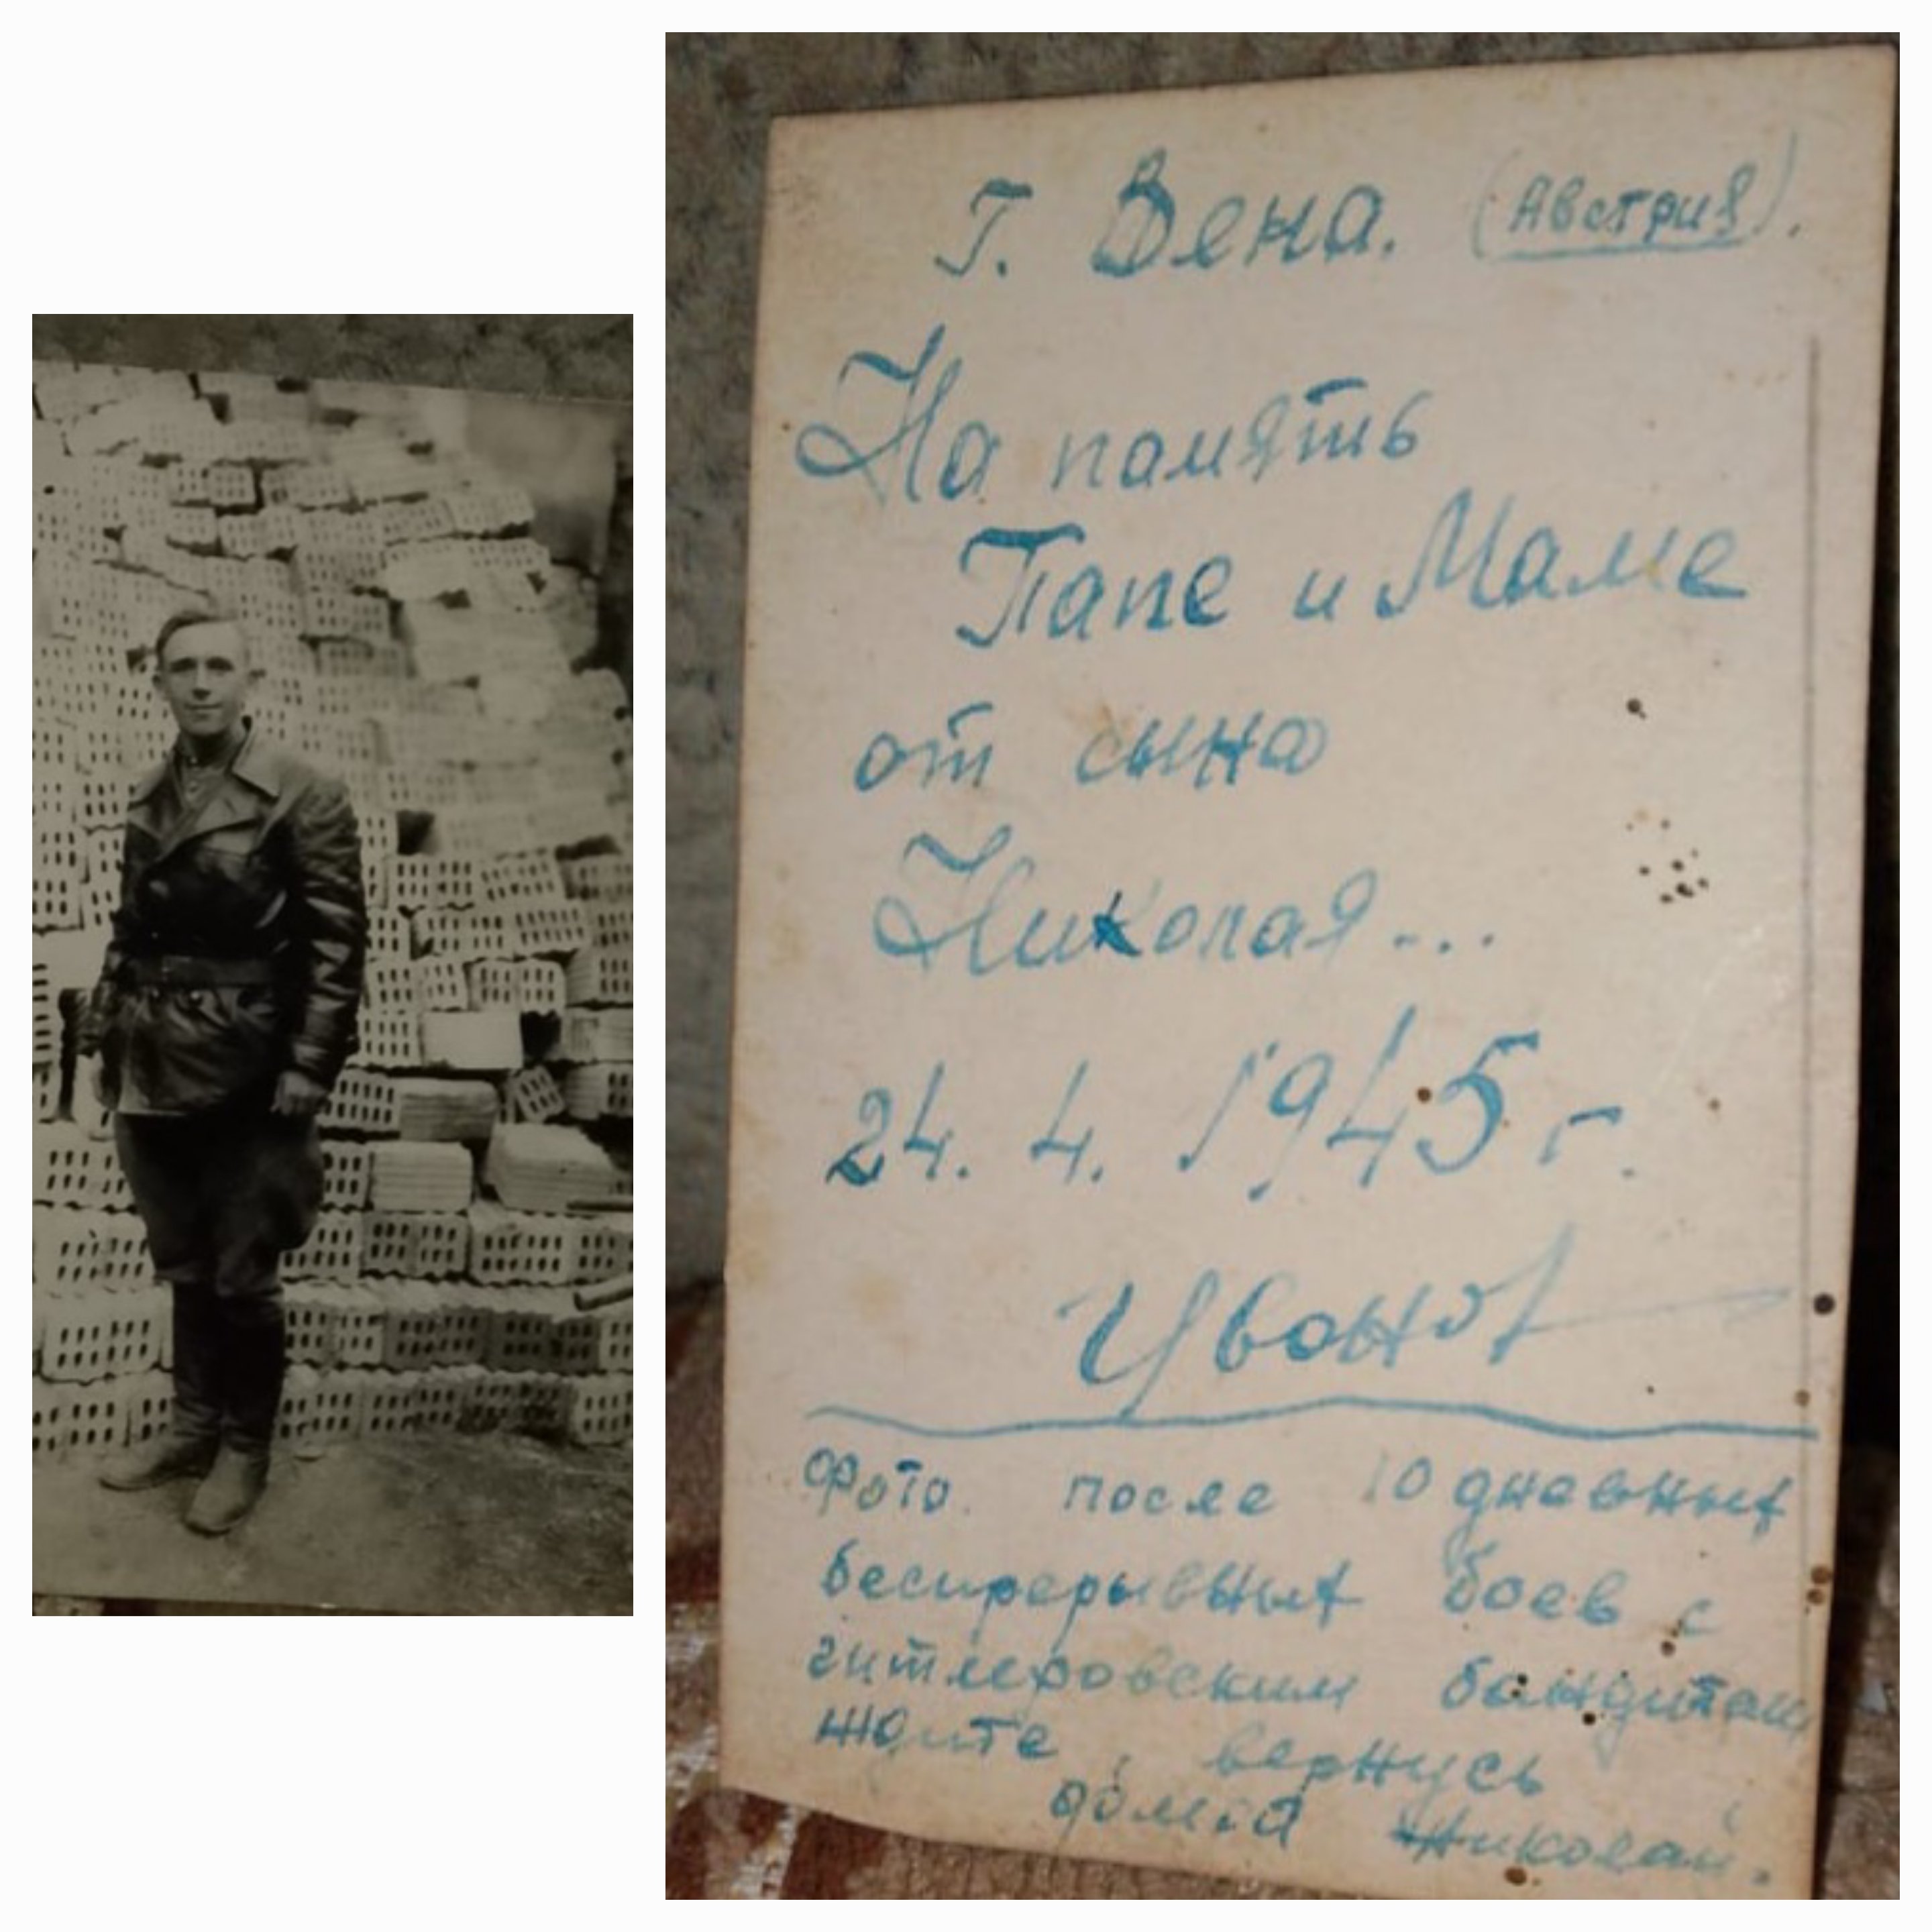 г. Вена. (Австрия).
На память
Папе и Маме
от сына
Николая...
24. 4. 1945 г.
фото после 10 дневных
беспрерывных боев с
гитлеровским бандитам
ждите, вернусь
домой Николай.